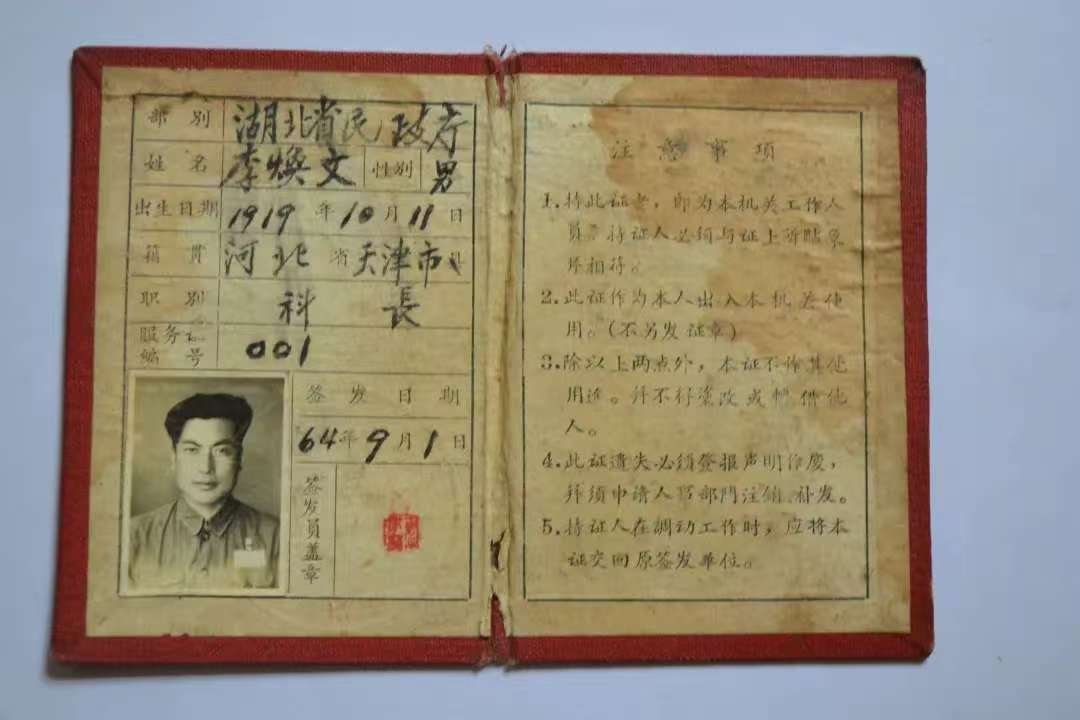 部别 湖北省民政厅
姓名 李焕文 性别 男
出生日期 1919年10月11日
籍贯 河北省天津市县
职别 科長
服务证编号 001
签发日期
64年9月1日
签发员盖章
注意事项
1.持此证者，即为本机关工作人
员。持证人必须与证上所贴象
片相符。
2.此证作为本人出入本机关使
用。(不另发证章)
3.除以上两点外，本证不作其他
用途。并不得塗改或转借他
人。
4.此证遗失必须登报声明作废，
并须申请人密部門注销、补发。
5.持证人在調动工作时，应将本
证交回原签发单位。